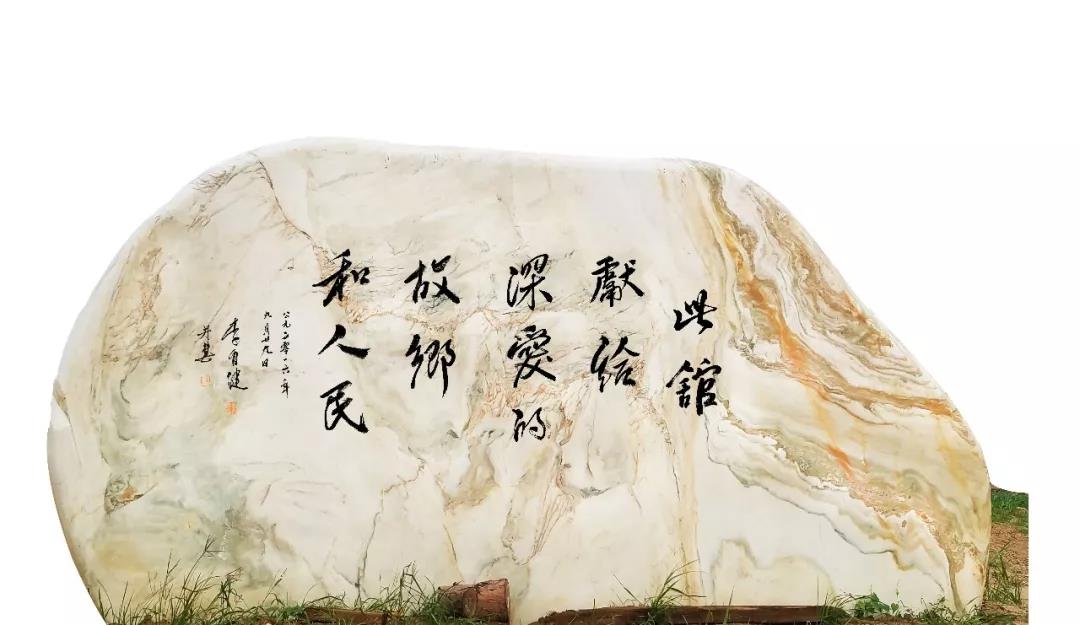 此館
獻給
深愛的
故鄉
和人民
公元二零一六年
九月廿九日
李自健